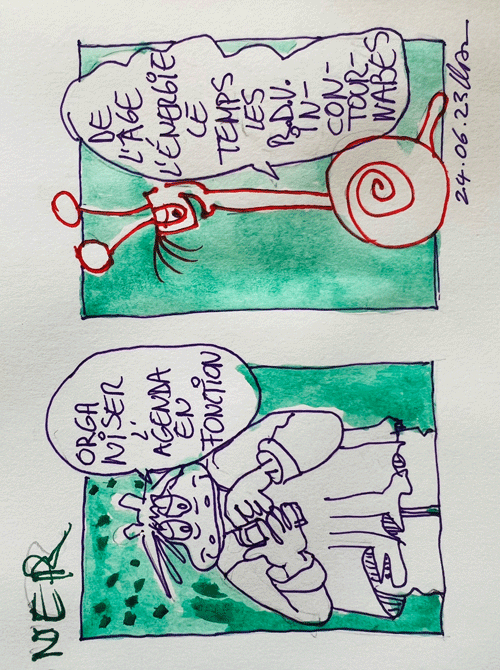 NER
ORGA
NISER
L'
AGENDA
EN
FONCTION
DE
L'ÂGE
L'ÉNERGIE
LE
TEMPS
LES
R.D.V.
IN-
CON-
TOUR-
NABES
24.06.23